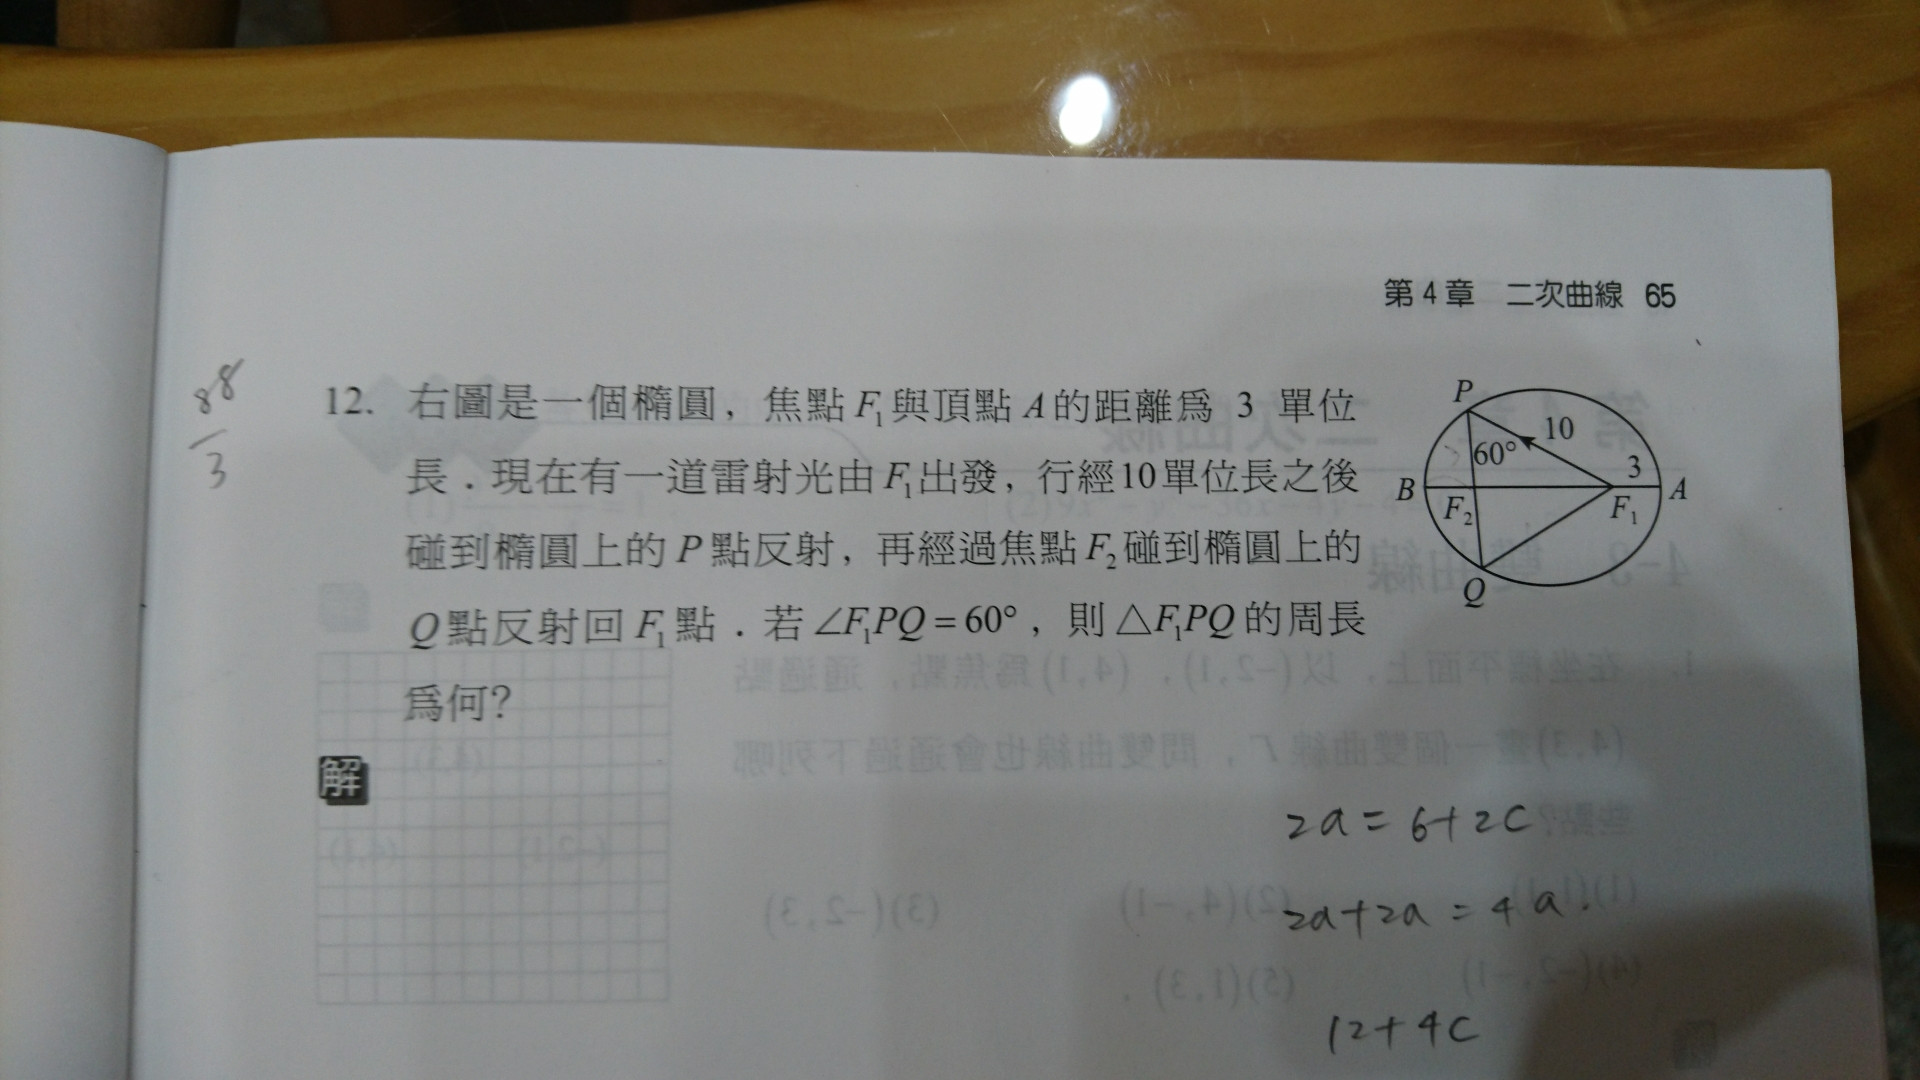 第4章 二次曲線 65
88
3
12. 右圖是一個橢圓，焦點 F₁ 與頂點 A 的距離為 3 單位
長．現在有一道雷射光由 F₁ 出發，行經10單位長之後
碰到橢圓上的 P 點反射，再經過焦點 F₂ 碰到橢圓上的
Q 點反射回 F₁ 點．若 ∠F₁PQ = 60°，則 △F₁PQ 的周長
為何？
P
10
60°
3
B
F₂
F₁
A
Q
解
2a = 6+2c
2a+2a = 4a
12+4c